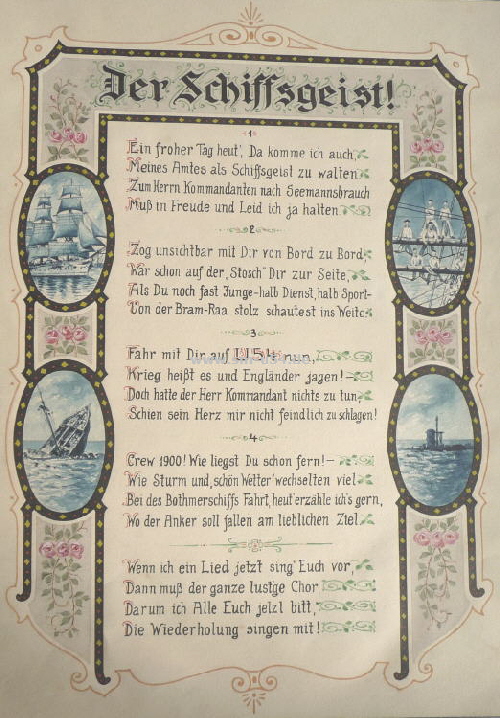 Der Schiffsgeist!
1
Ein froher Tag heut', Da komme ich auch,
Meines Amtes als Schiffsgeist zu walten
Zum Herrn Kommandanten nach Seemannsbrauch
Muß in Freude und Leid ich ja halten.
2
Zog unsichtbar mit Dir von Bord zu Bord,
War schon auf der „Stosch" Dir zur Seite,
Als Du noch fast Junge-halb Dienst, halb Sport-
Von der Bram-Raa stolz schautest ins Weite.
3
Fahr mit Dir auf U154 nun,
Krieg heißt es und Engländer jagen!-
Doch hatte der Herr Kommandant nichts zu tun,
Schien sein Herz mir nicht feindlich zu schlagen!
4
Crew 1900! Wie liegst Du schon fern!-
Wie Sturm und, schön Wetter' wechselten viel
Bei des Bothmerschiffs Fahrt, heut' erzähle ich's gern,
Wo der Anker soll fallen am lietlichen Ziel
Wenn ich ein Lied jetzt sing' Euch vor,
Dann muß der ganze lustge Chor
Darum ich Alle Euch jetzt bitt,
Die Wiederholung singen mit!